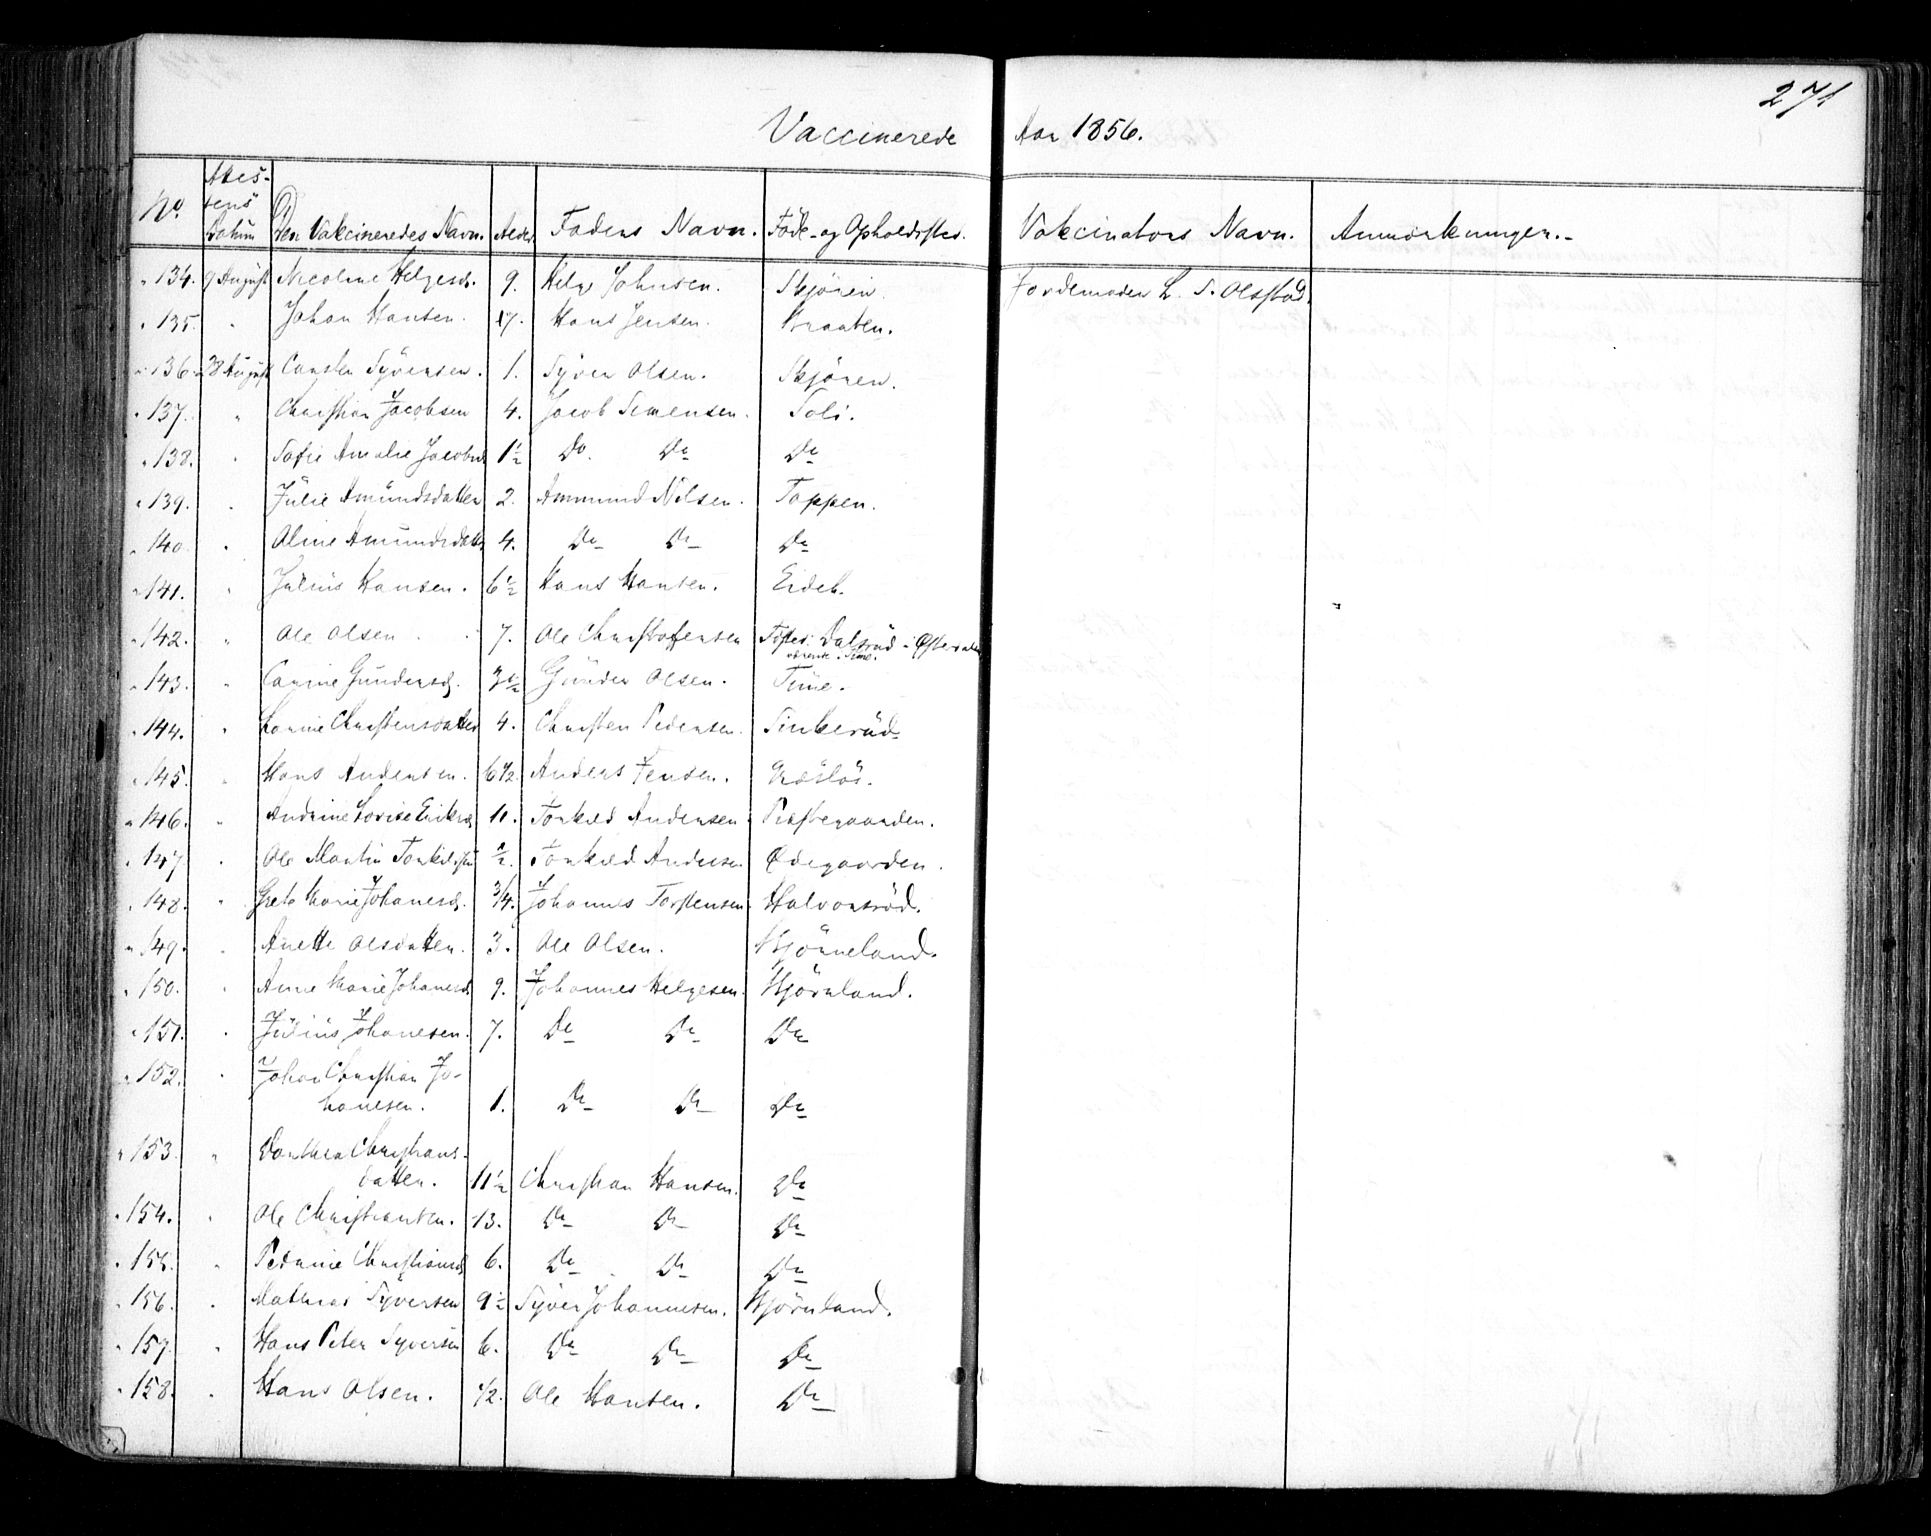 271
Vaccinerede Aar 1856.
No. Attestens Datum Den Vakcineredes Navn. Alder Faders Navn. Føde- og Opholdssted. Vakcinators Navn. Anmærkninger.
" 134. 9 August Nicoline Helgesd. 9. Helge Johnsen. Skjören. Jordemoder L. S. Olstad.
" 135. " Johan Hansen. 17. Hans Jensen. Braaten.
" 136. 28 August Carsten Syversen. 1. Syver Olsen. Skjören.
" 137. " Christian Jacobsen 4. Jacob Simensen. Soli.
" 138. " Sofie Amalie Jacobsd. 1½ Do. Do Do
" 139. " Julie Amundsdatter 2. Ammund Nilsen. Toppen.
" 140. " Oline Amundsdatter 4. Do Do Do
" 141. " Julius Hansen. 6½ Hans Hansen. Eidet.
" 142. " Ole Olsen 7. Ole Christoffersen
" 143. " Carine Gundersd. 3½ Gunder Olsen. Time.
" 144. " Karine Christensdatter 4. Christen Pedersen. Sinkeröd
" 145. " Hans Andersen. 6½ Anders Jensen. Græslös.
" 146. " Andrine Lovise Eriksd. 11. Torkild Andersen Prestegaarden.
" 147. " Ole Martin Torkildsen ½. Torkild Andersen Ødegaarden.
" 148. " Grete Marie Johanesd. 3/4. Johannes Torstensen Halvorsröd.
" 149. " Anette Olsdatter. 3. Ole Olsen. Kjörneland.
" 150. " Anne Marie Johanesd. 9. Johannes Helgesen. Kjörnland.
" 151. " Julius Johanesen. 7. Do Do Do
" 152. " Johan Christian Jo-
hanesen. 1. Do Do Do
" 153. " Dorthea Christians-
datter. 11½ Christian Hansen. Do
" 154. " Ole Christiansen. 13. Do Do Do
" 155. " Petrine Christiansd. 6. Do Do Do
" 156. " Mathias Syversen 9½ Syver Johannesen. Kjörnland.
" 157. " Hans Peter Syversen 6. Do Do Do
" 158. " Hans Olsen. ½. Ole Hansen. Do